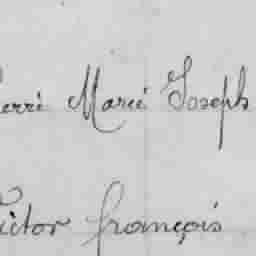 Pierre Marie Joseph
Victor françois